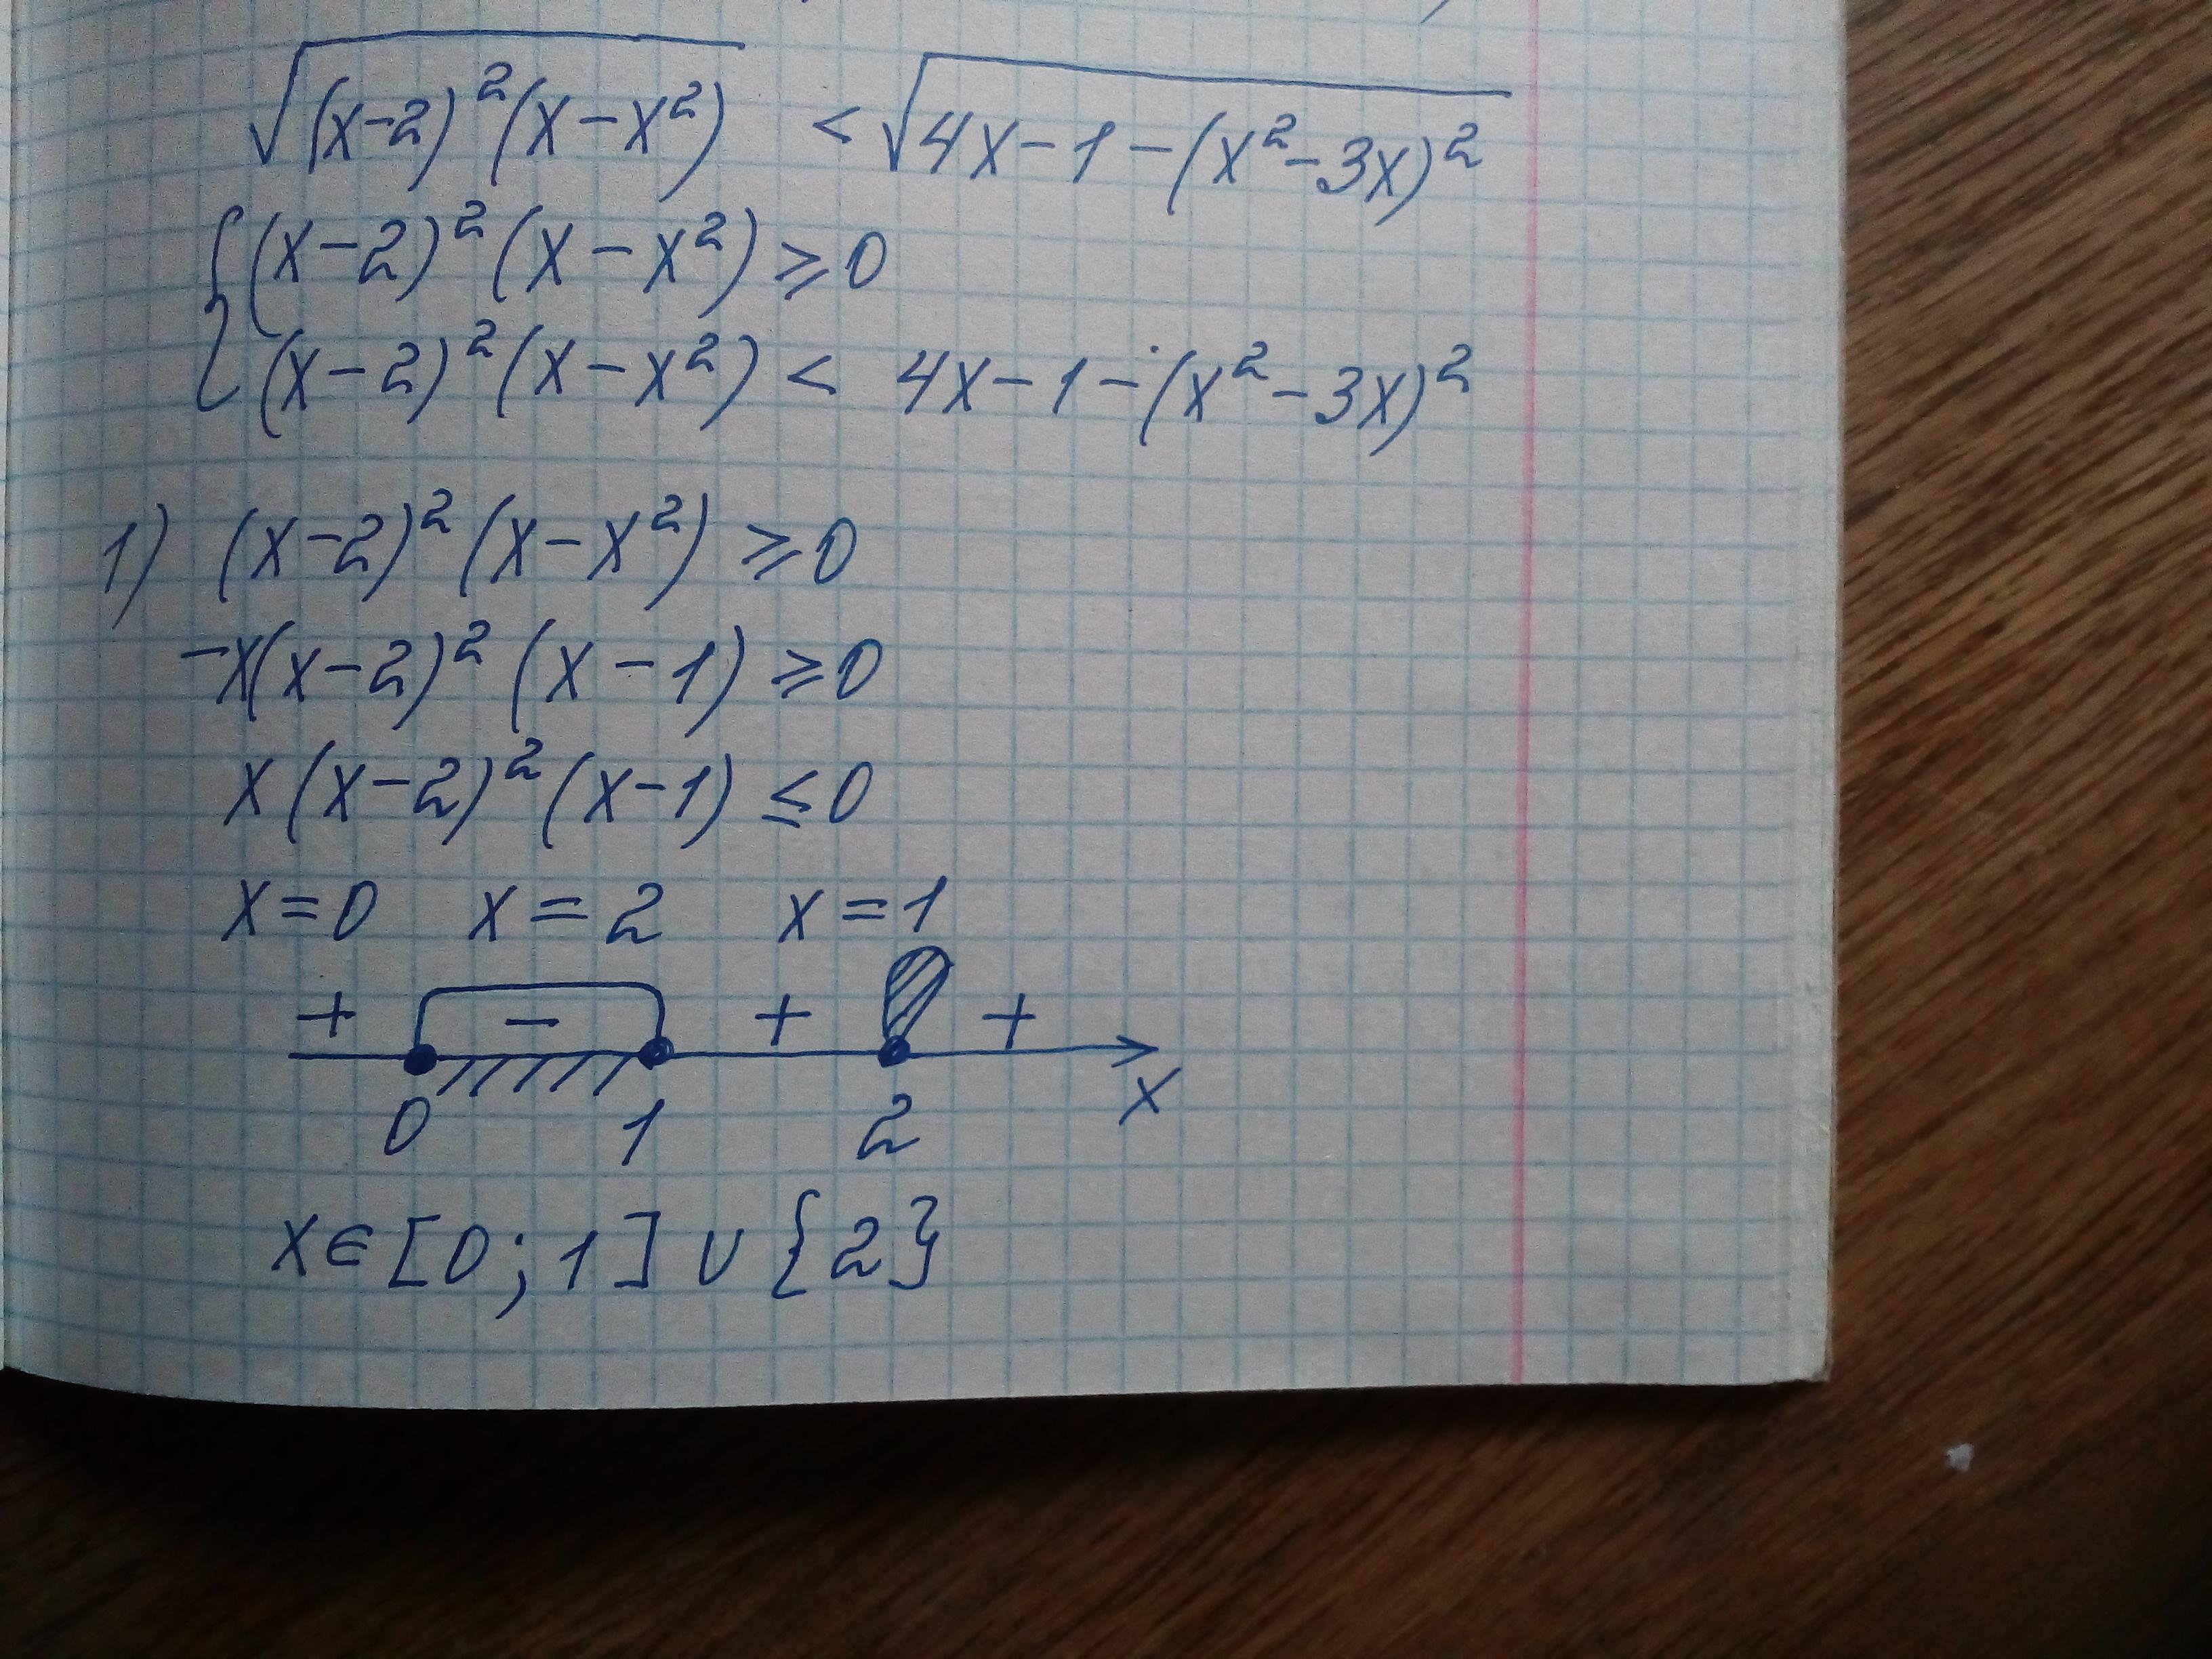 √((x-2)²(x-x²)) < √(4x-1-(x²-3x)²)
{(x-2)²(x-x²)⩾0
(x-2)²(x-x²) < 4x-1-(x²-3x)²
1) (x-2)²(x-x²)⩾0
-x(x-2)²(x-1)⩾0
x(x-2)²(x-1)≤0
x=0 x=2 x=1
+ - + +
0 1 2 x
x∈[0;1]∪{2}